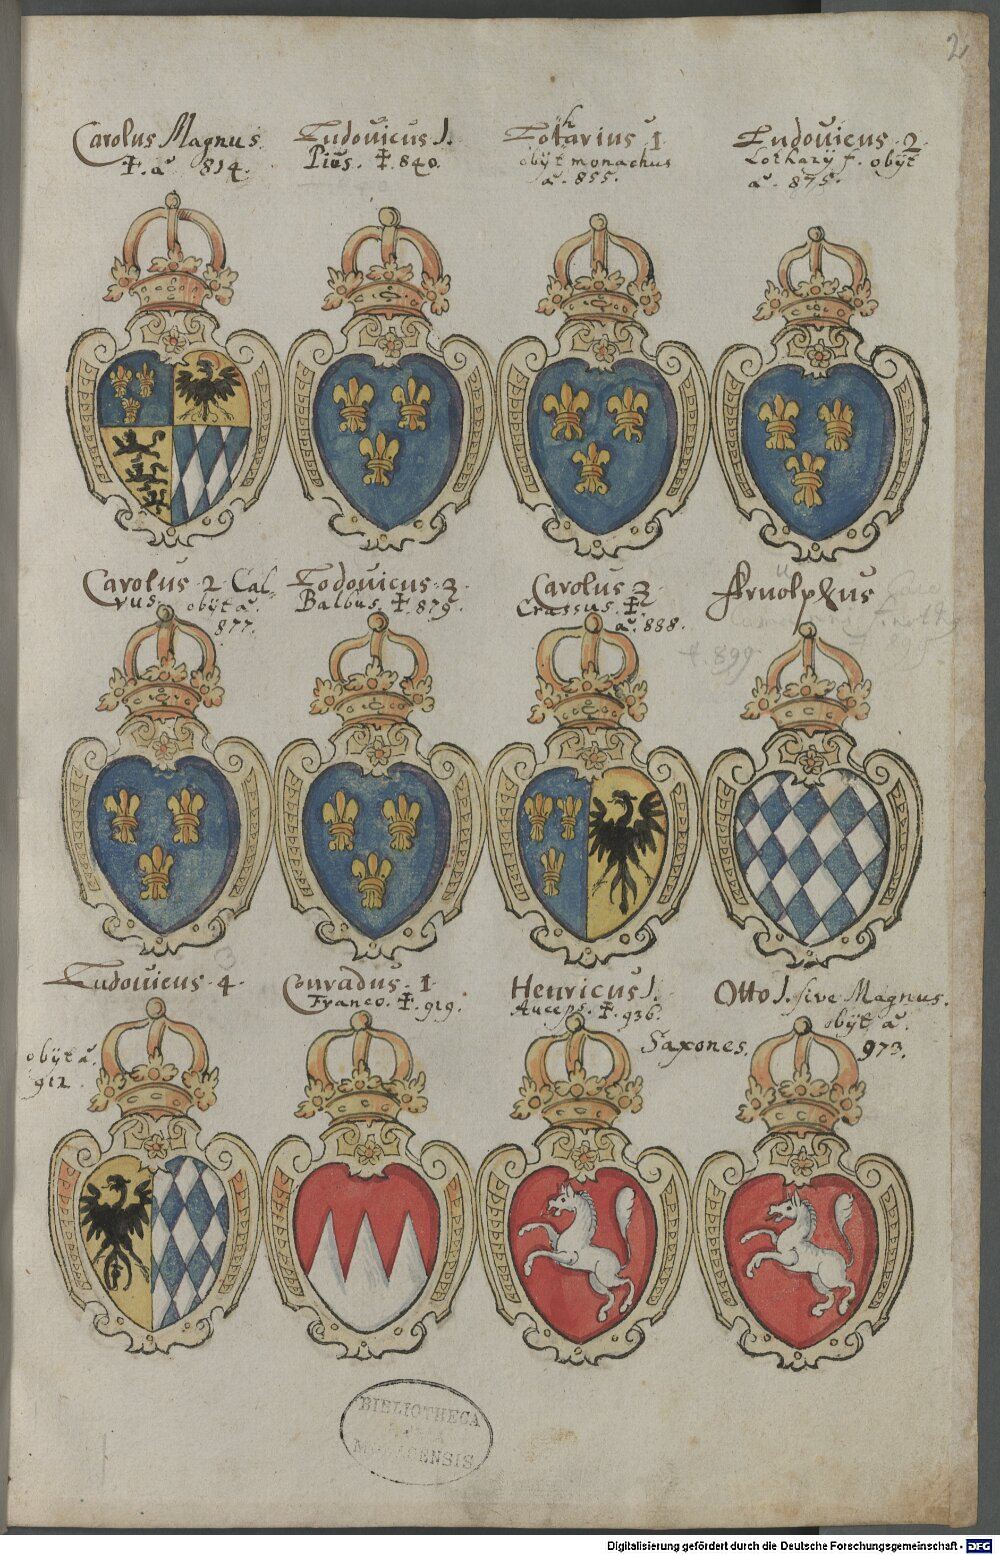 2
Carolus Magnus.
✝. a. 814.
Ludouicus 1.
Pius. ✝. 840.
Lotharius 1
obijt monachus
a. 855.
Ludouicus 2.
Lotharij f. obijt
a. 875.
Carolus 2 Cal-
vus. obijt a.
877.
Lodouicus 3
Balbus. ✝. 879.
Carolus 3
Crassus. ✝.
a. 888.
✝. 899
Arnulphus
899
Ludouicus 4.
obijt a.
912
Conradus. 1
Franco. ✝. 919.
Henricus 1.
Auceps. ✝. 936.
Saxones.
Otto 1. sive Magnus.
obijt a.
973.
BIBLIOTHECA
REGIA
MONACENSIS.
Digitalisierung gefördert durch die Deutsche Forschungsgemeinschaft - DFG